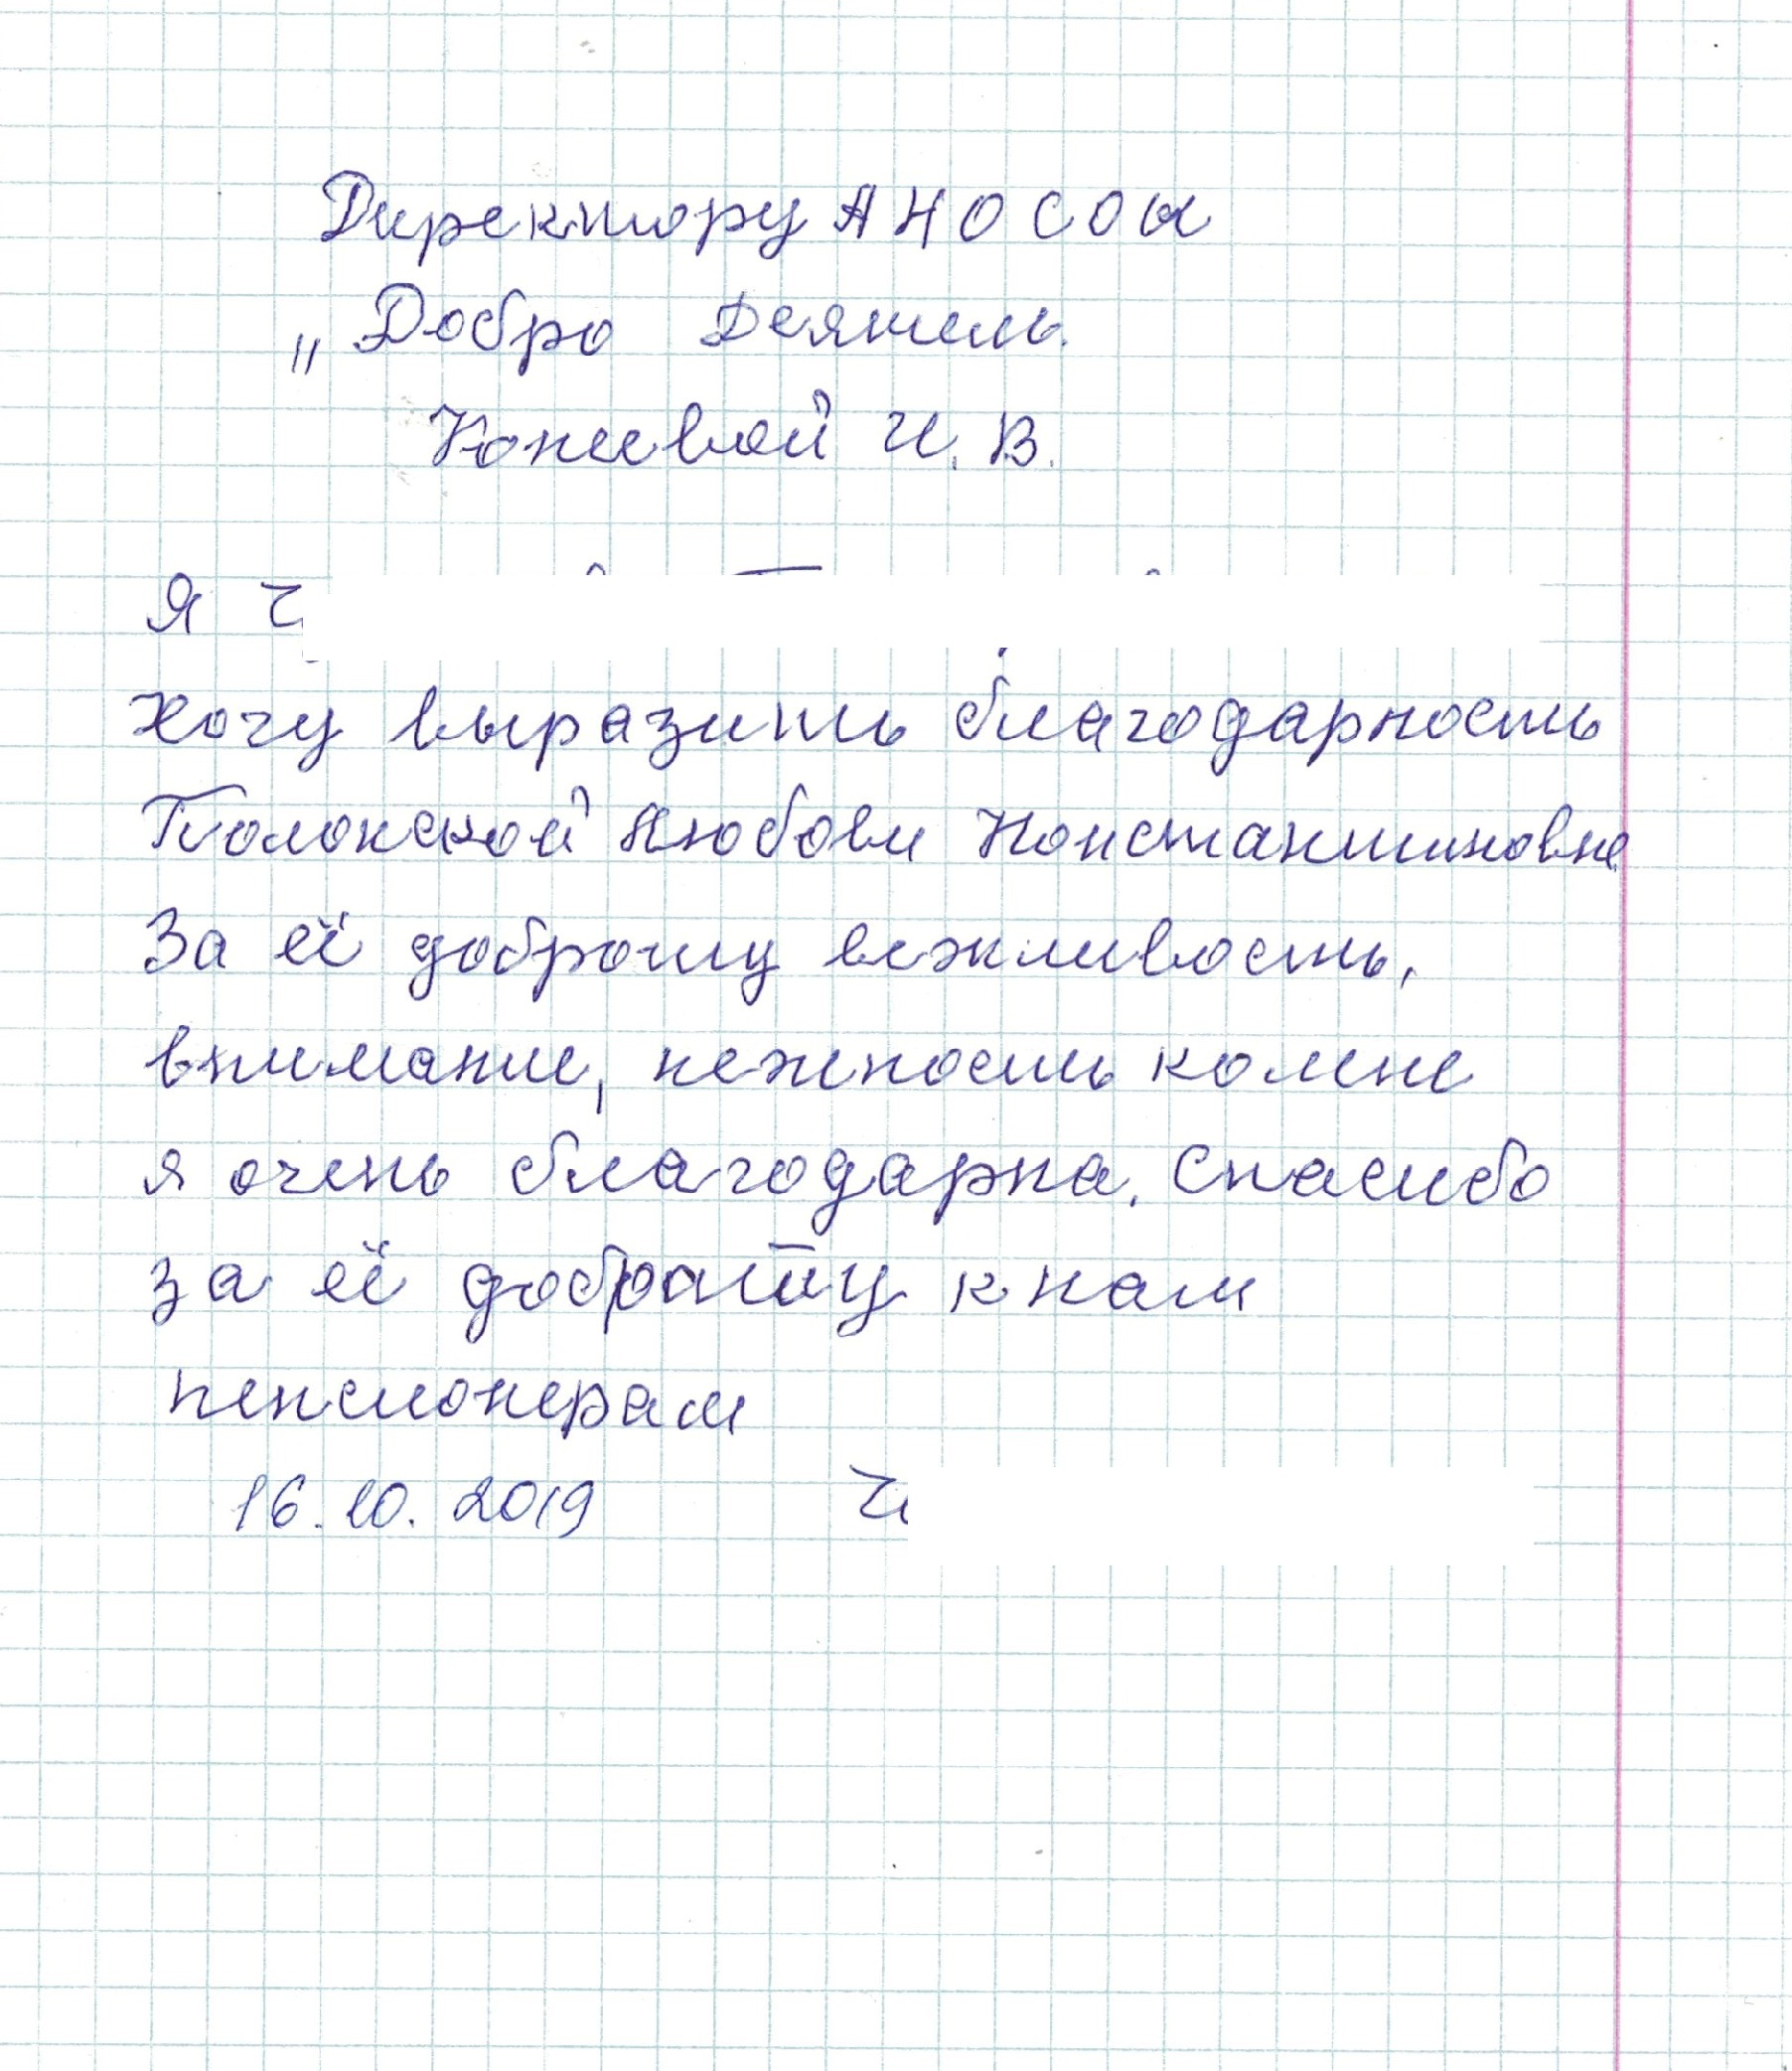 Директору АНО СОЫ
„Добро Деятель.
Конševой И. В.
Я Ч
хочу выразить благодарность
Полонской Любови Константиновне
За её доброту вежливость,
внимание, нежность ко мне
я очень благодарна. Спасибо
за её доброту к нам
пенсионерам
16.10.2019 Ч